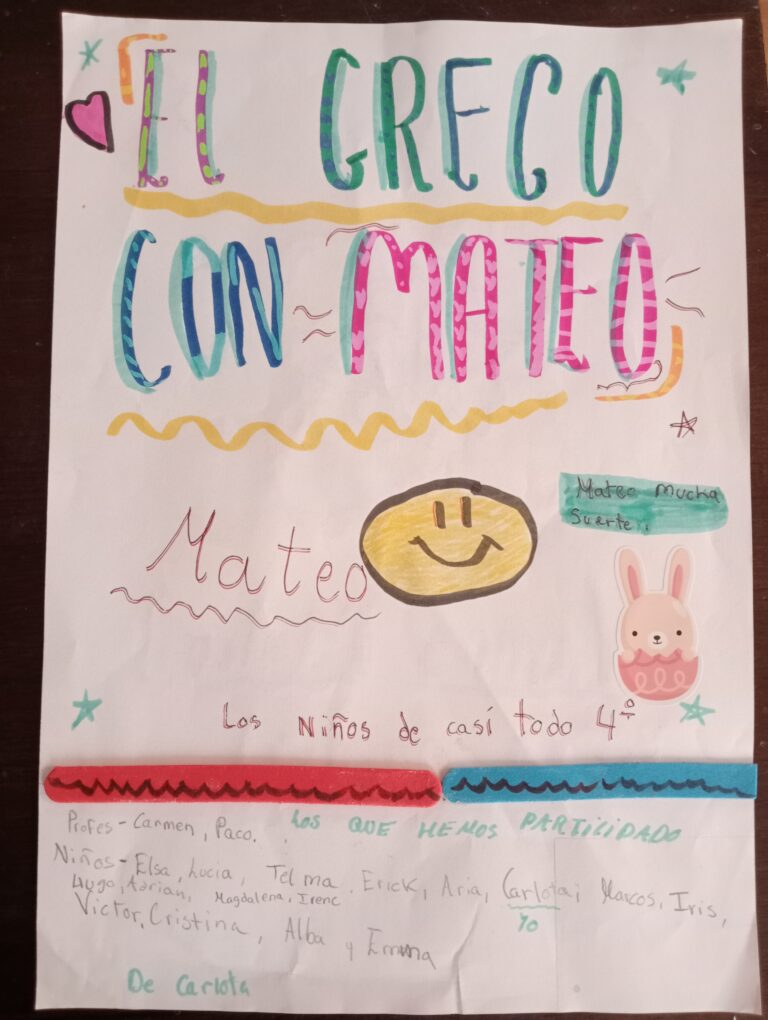 EL GRECO
CON MATEO
Mateo mucha
suerte.
Mateo
Los Niños de casí todo 4º
Profes-Carmen, Paco. LOS QUE HEMOS PARTICIPADO
Niños-Elsa, Lucia, Telma. Erick, Aria, Carlota, Marcos, Iris,
Hugo, Adrian, Magdalena, Irene
Victor, Cristina, Alba y Emma
Yo
De Carlota